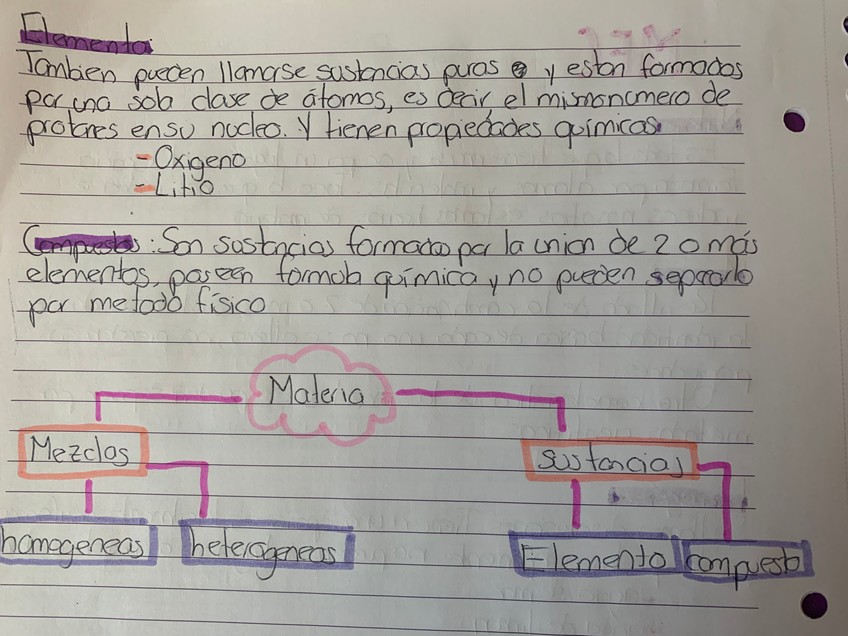 Elemento:
Tambien pueden llamarse sustancias puras y estan formados
por una sola clase de átomos, es decir, el mismo numero de
protones en su nucleo. Y tienen propiedades químicas
- Oxigeno
- Litio
Compuestos: Son sustancias formadas por la union de 2 o más
elementos, poseen formula química y no pueden separarlo
por metodo físico
Materia
Mezclas
sustancias
homogeneas heterogeneas Elemento compuesto